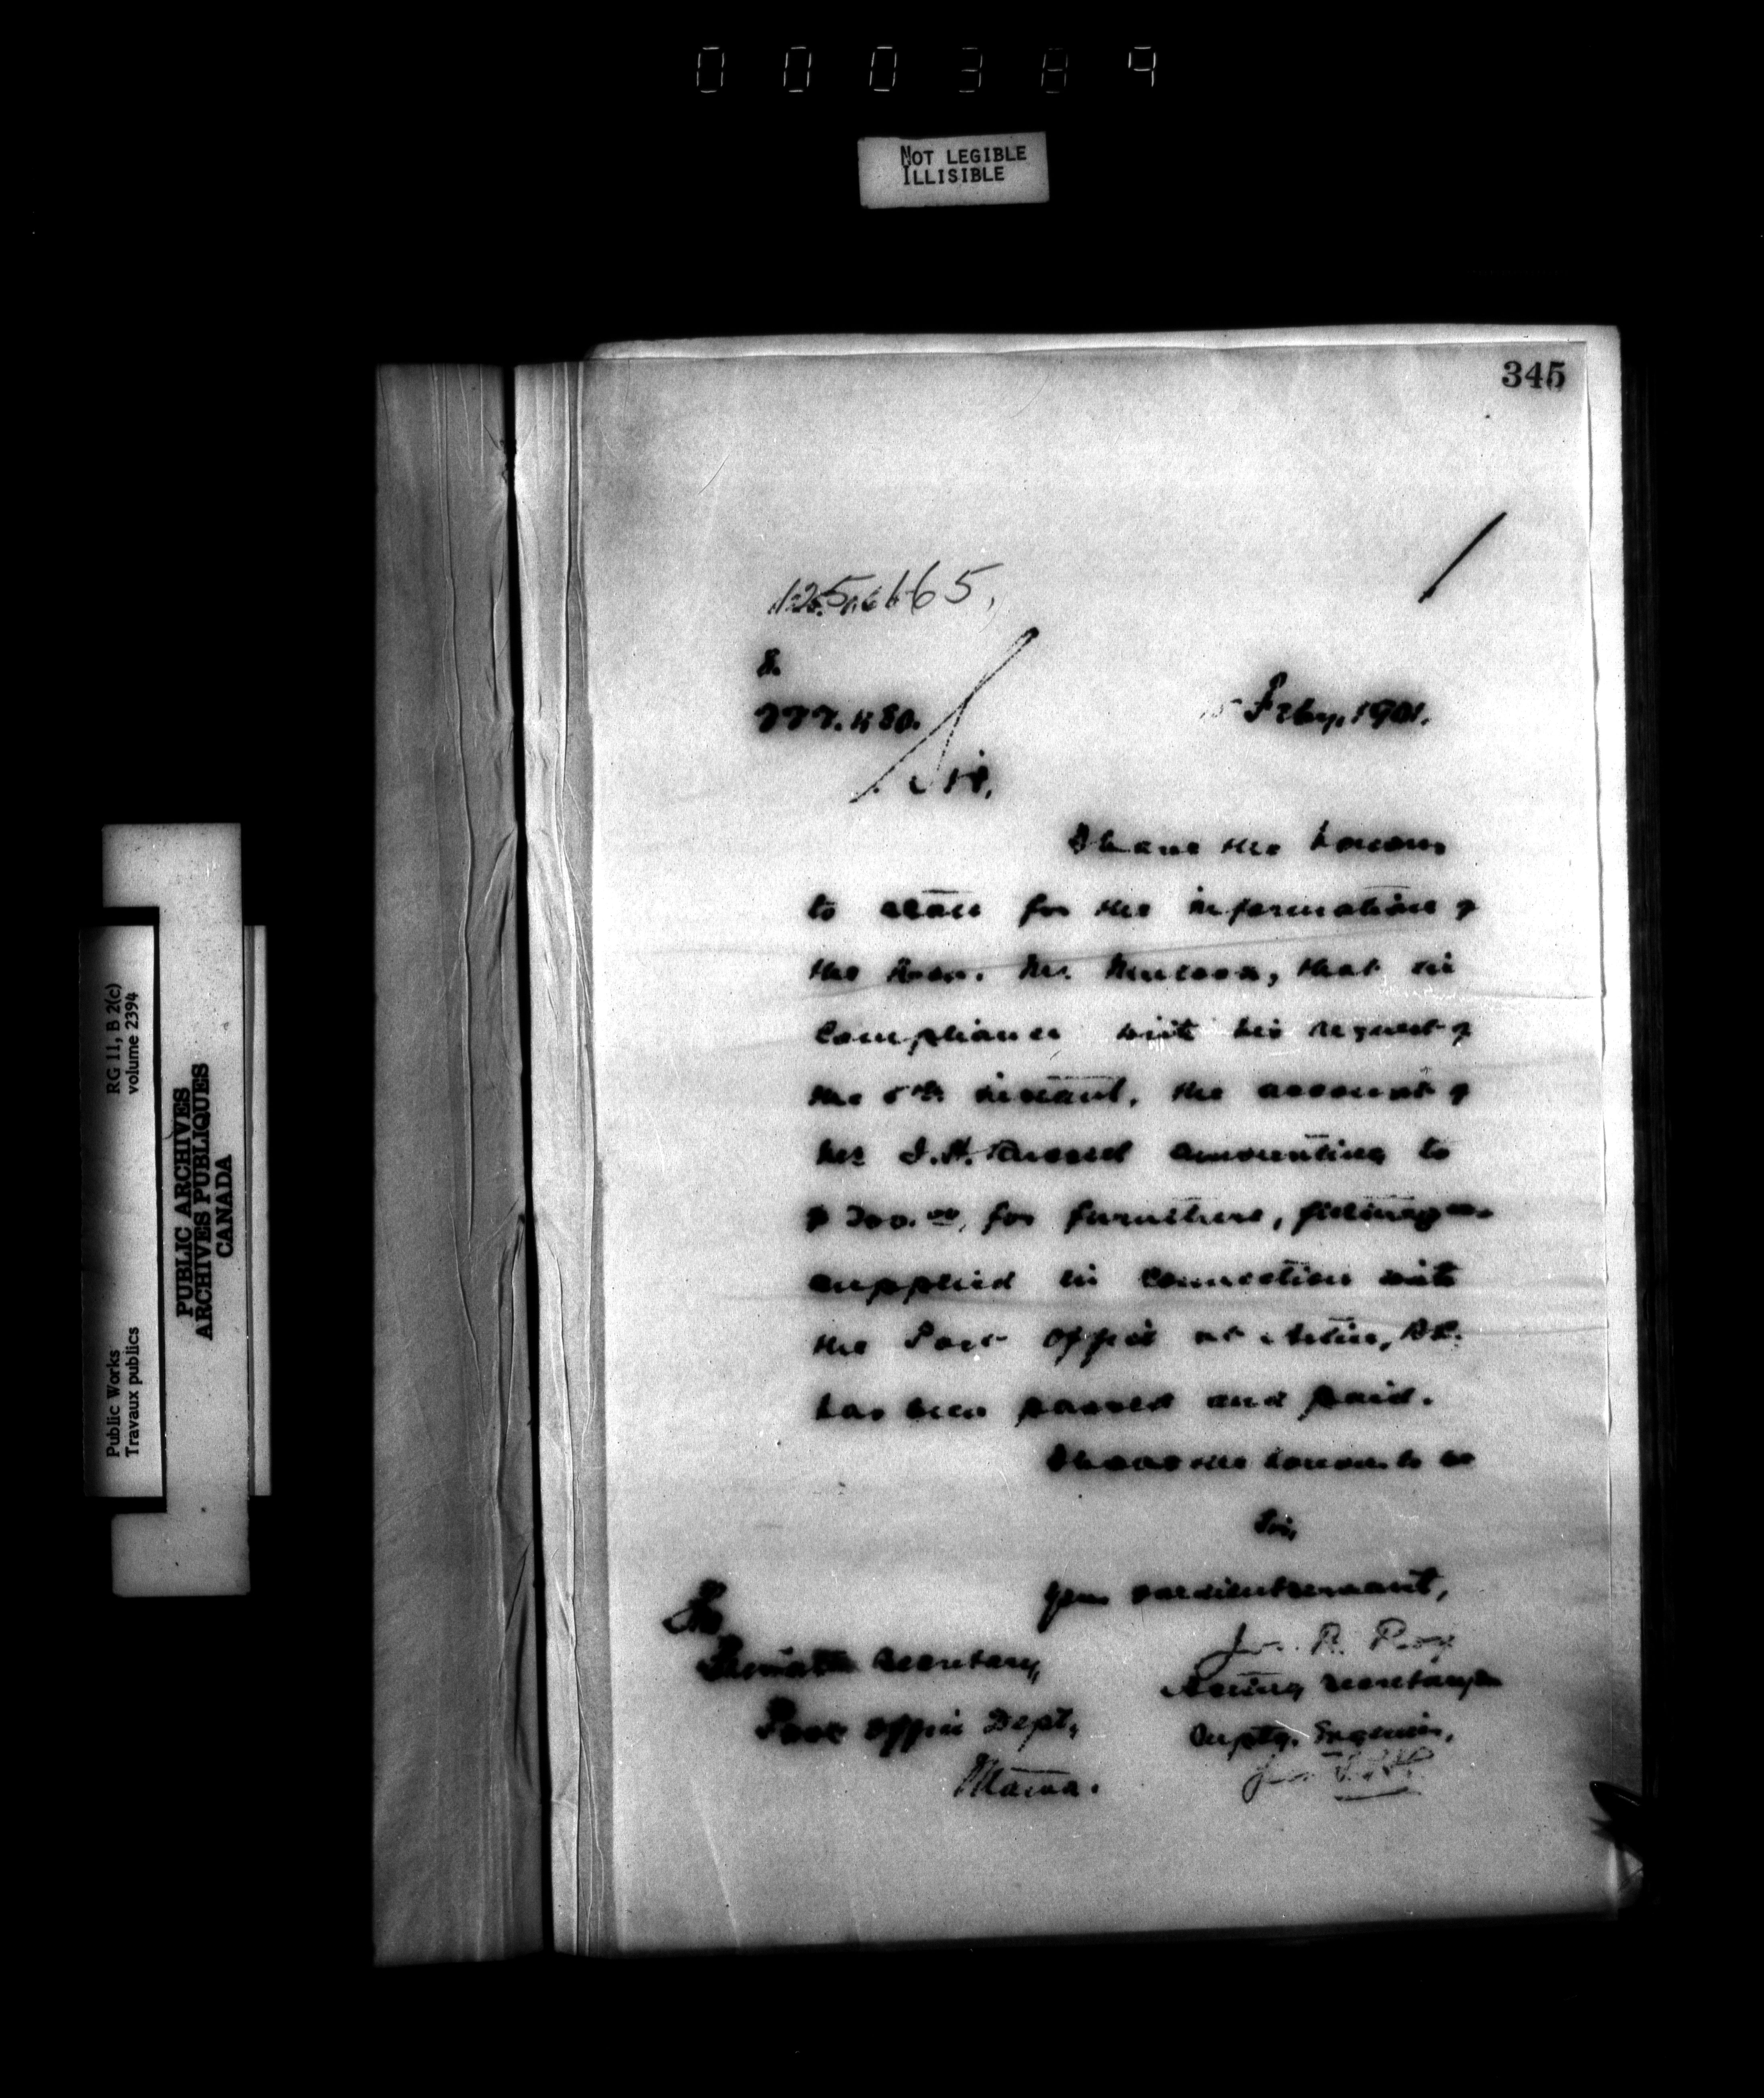 000389
NOT LEGIBLE
ILLISIBLE
345
8.
15 Feby, 1901.
Sir,
I have the honour
to state for the information of
the Hon. Mr. Mulock, that in
compliance with his request of
the 5th instant, the account of
Mr J. H. amounting to
for furniture, fittings &c.
supplied in connection with
the Post Office at Atlin, B.C.
has been passed and paid.
I have the honour to be
Sir,
Your obedient servant,
Jos. R. Roy
Acting Secretary
The
Private Secretary,
Post Office Dept,
Ottawa.
Public Works RG 11, B 2(c)
Travaux publics volume 2394
PUBLIC ARCHIVES
ARCHIVES PUBLIQUES
CANADA